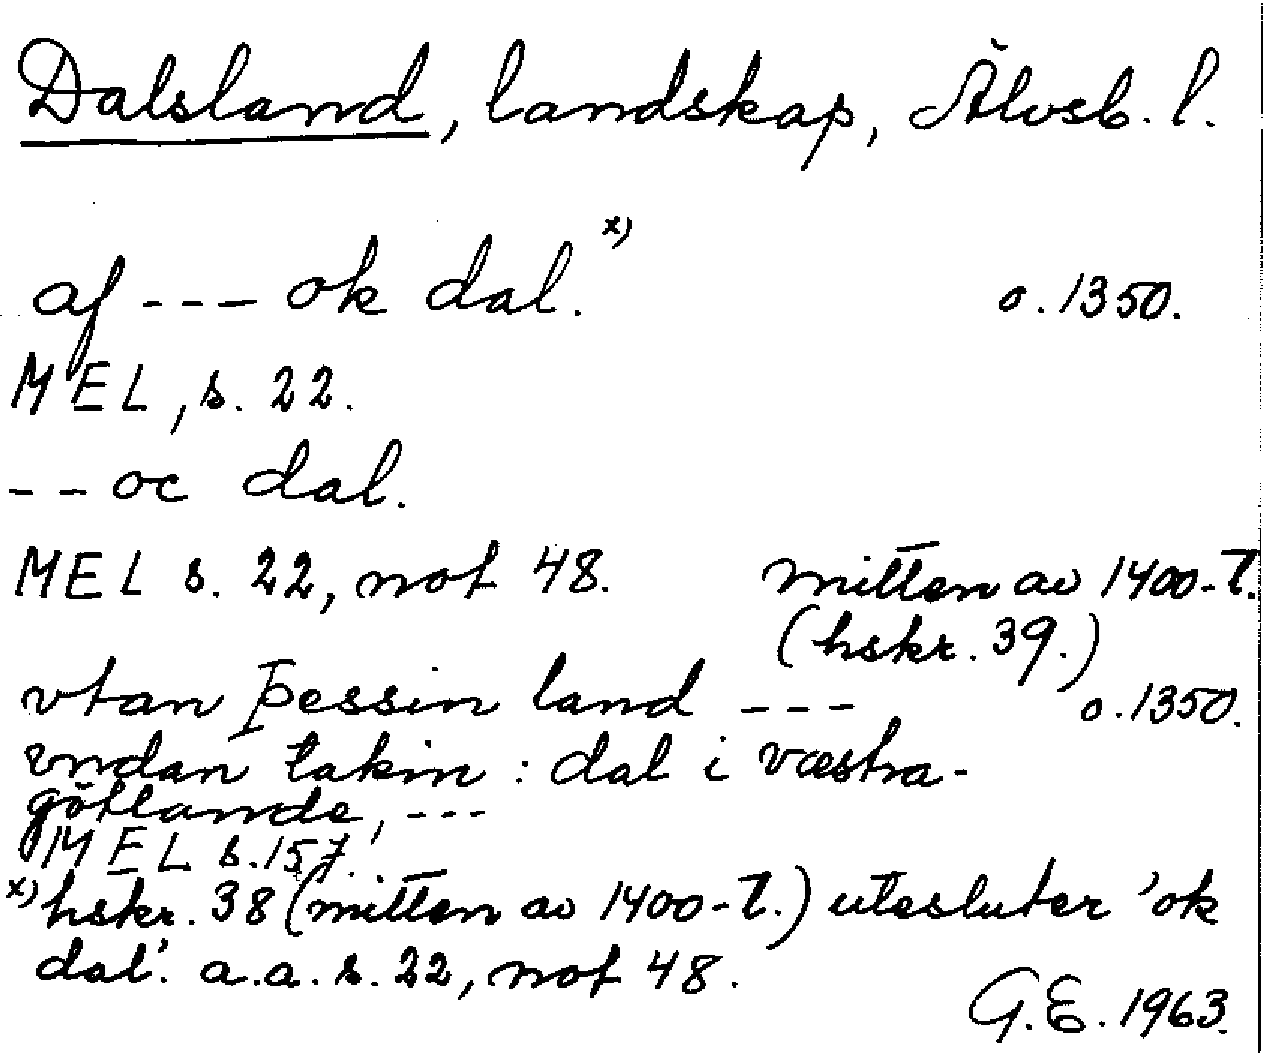 Dalsland, landskap, Älvsb. l.
af --- ok dal. x) o. 1350.
MEL, s. 22.
-- oc dal.
MEL s. 22, not 48. mitten av 1400-t.
(hskr. 39.)
vtan þessin land --- o. 1350.
vndan takin : dal i væstra-
götlande, ---
MEL s. 157.
x) hskr. 38 (mitten av 1400-t.) utesluter 'ok
dal'. a.a. s. 22, not 48.
G.E. 1963.